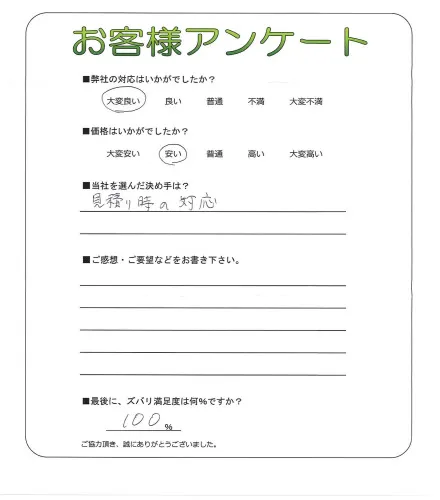 お客様アンケート
■弊社の対応はいかがでしたか？
大変良い 良い 普通 不満 大変不満
■価格はいかがでしたか？
大変安い 安い 普通 高い 大変高い
■当社を選んだ決め手は？
見積り時の対応
■ご感想・ご要望などをお書き下さい。
■最後に、ズバリ満足度は何%ですか？
100%
ご協力頂き、誠にありがとうございました。